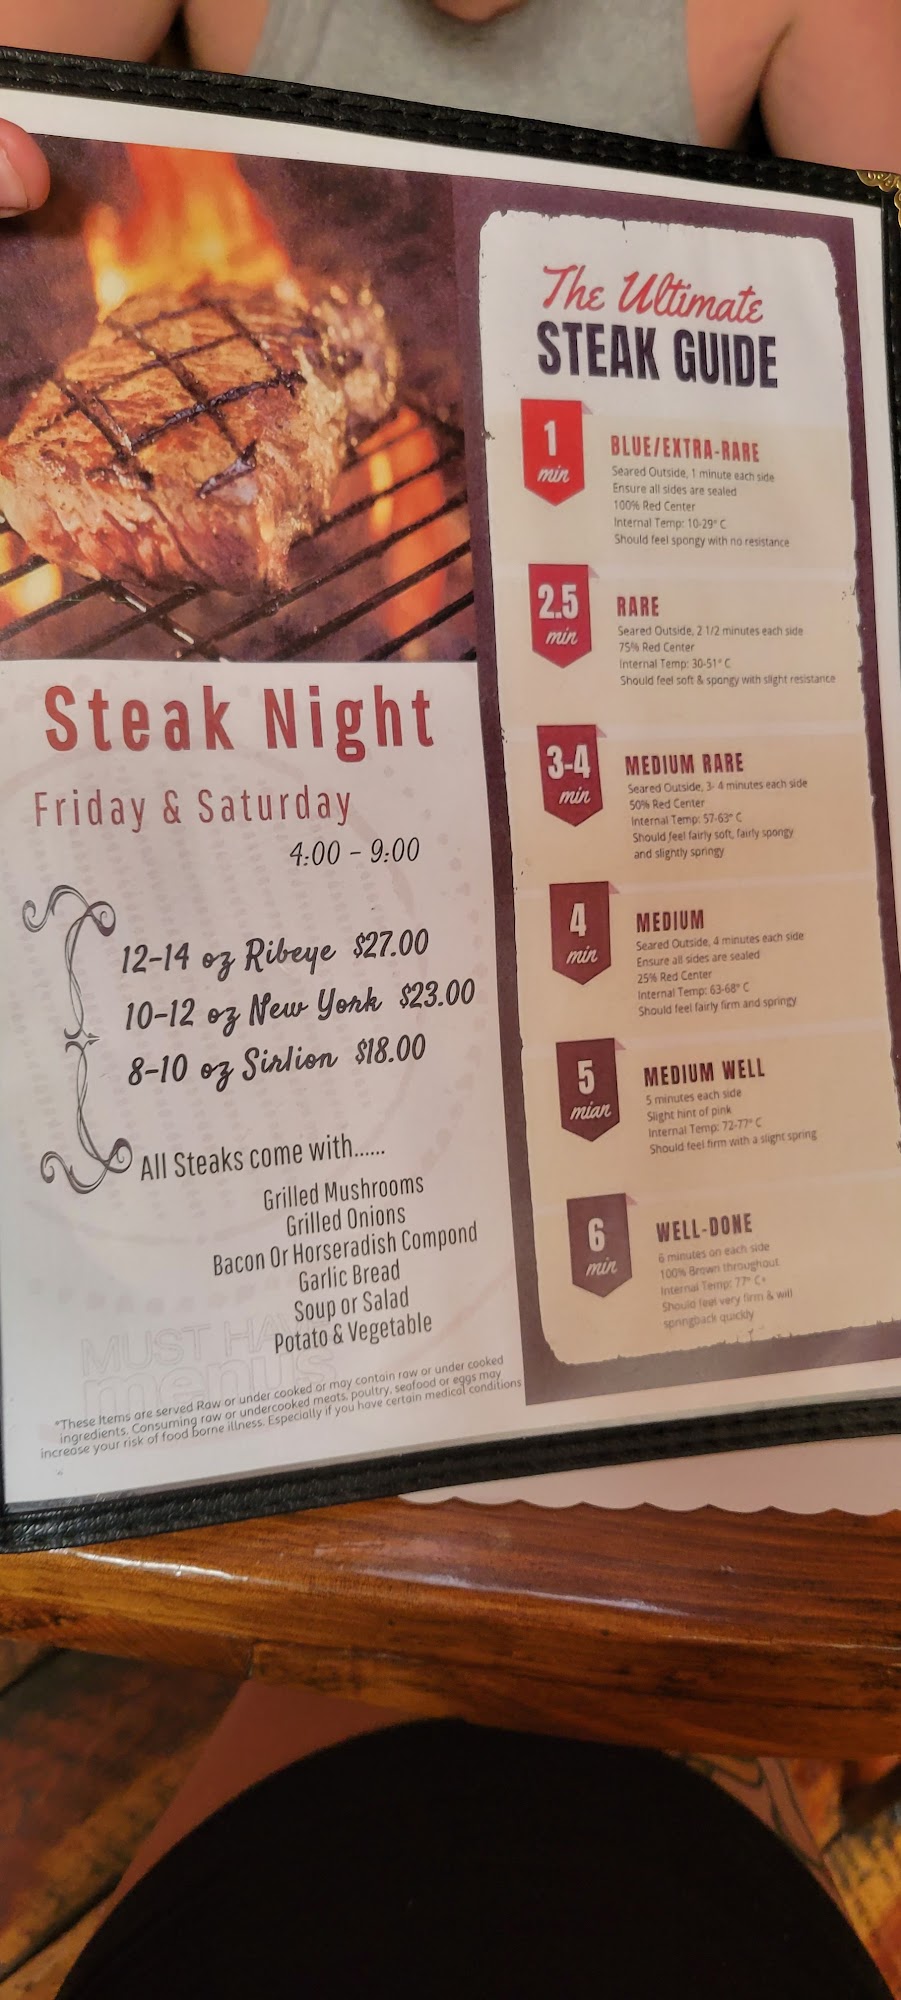 Steak Night
Friday & Saturday
4:00 - 9:00
12-14 oz Ribeye $27.00
10-12 oz New York $23.00
8-10 oz Sirlion $18.00
All Steaks come with......
Grilled Mushrooms
Grilled Onions
Bacon Or Horseradish Compond
Garlic Bread
Soup or Salad
Potato & Vegetable
MUST HAVE
menus
*These Items are served Raw or under cooked or may contain raw or under cooked
ingredients. Consuming raw or undercooked meats, poultry, seafood or eggs may
increase your risk of food borne illness. Especially if you have certain medical conditions
The Ultimate
STEAK GUIDE
1
min
BLUE/EXTRA-RARE
Seared Outside, 1 minute each side
Ensure all sides are sealed
100% Red Center
Internal Temp: 10-29° C
Should feel spongy with no resistance
2.5
min
RARE
Seared Outside, 2 1/2 minutes each side
75% Red Center
Internal Temp: 30-51° C
Should feel soft & spongy with slight resistance
3-4
min
MEDIUM RARE
Seared Outside, 3- 4 minutes each side
50% Red Center
Internal Temp: 57-63° C
Should feel fairly soft, fairly spongy
and slightly springy
4
min
MEDIUM
Seared Outside, 4 minutes each side
Ensure all sides are sealed
25% Red Center
Internal Temp: 63-68° C
Should feel fairly firm and springy
5
mian
MEDIUM WELL
5 minutes each side
Slight hint of pink
Internal Temp: 72-77° C
Should feel firm with a slight spring
6
min
WELL-DONE
6 minutes on each side
100% Brown throughout
Internal Temp: 77° C+
Should feel very firm & will
springback quickly